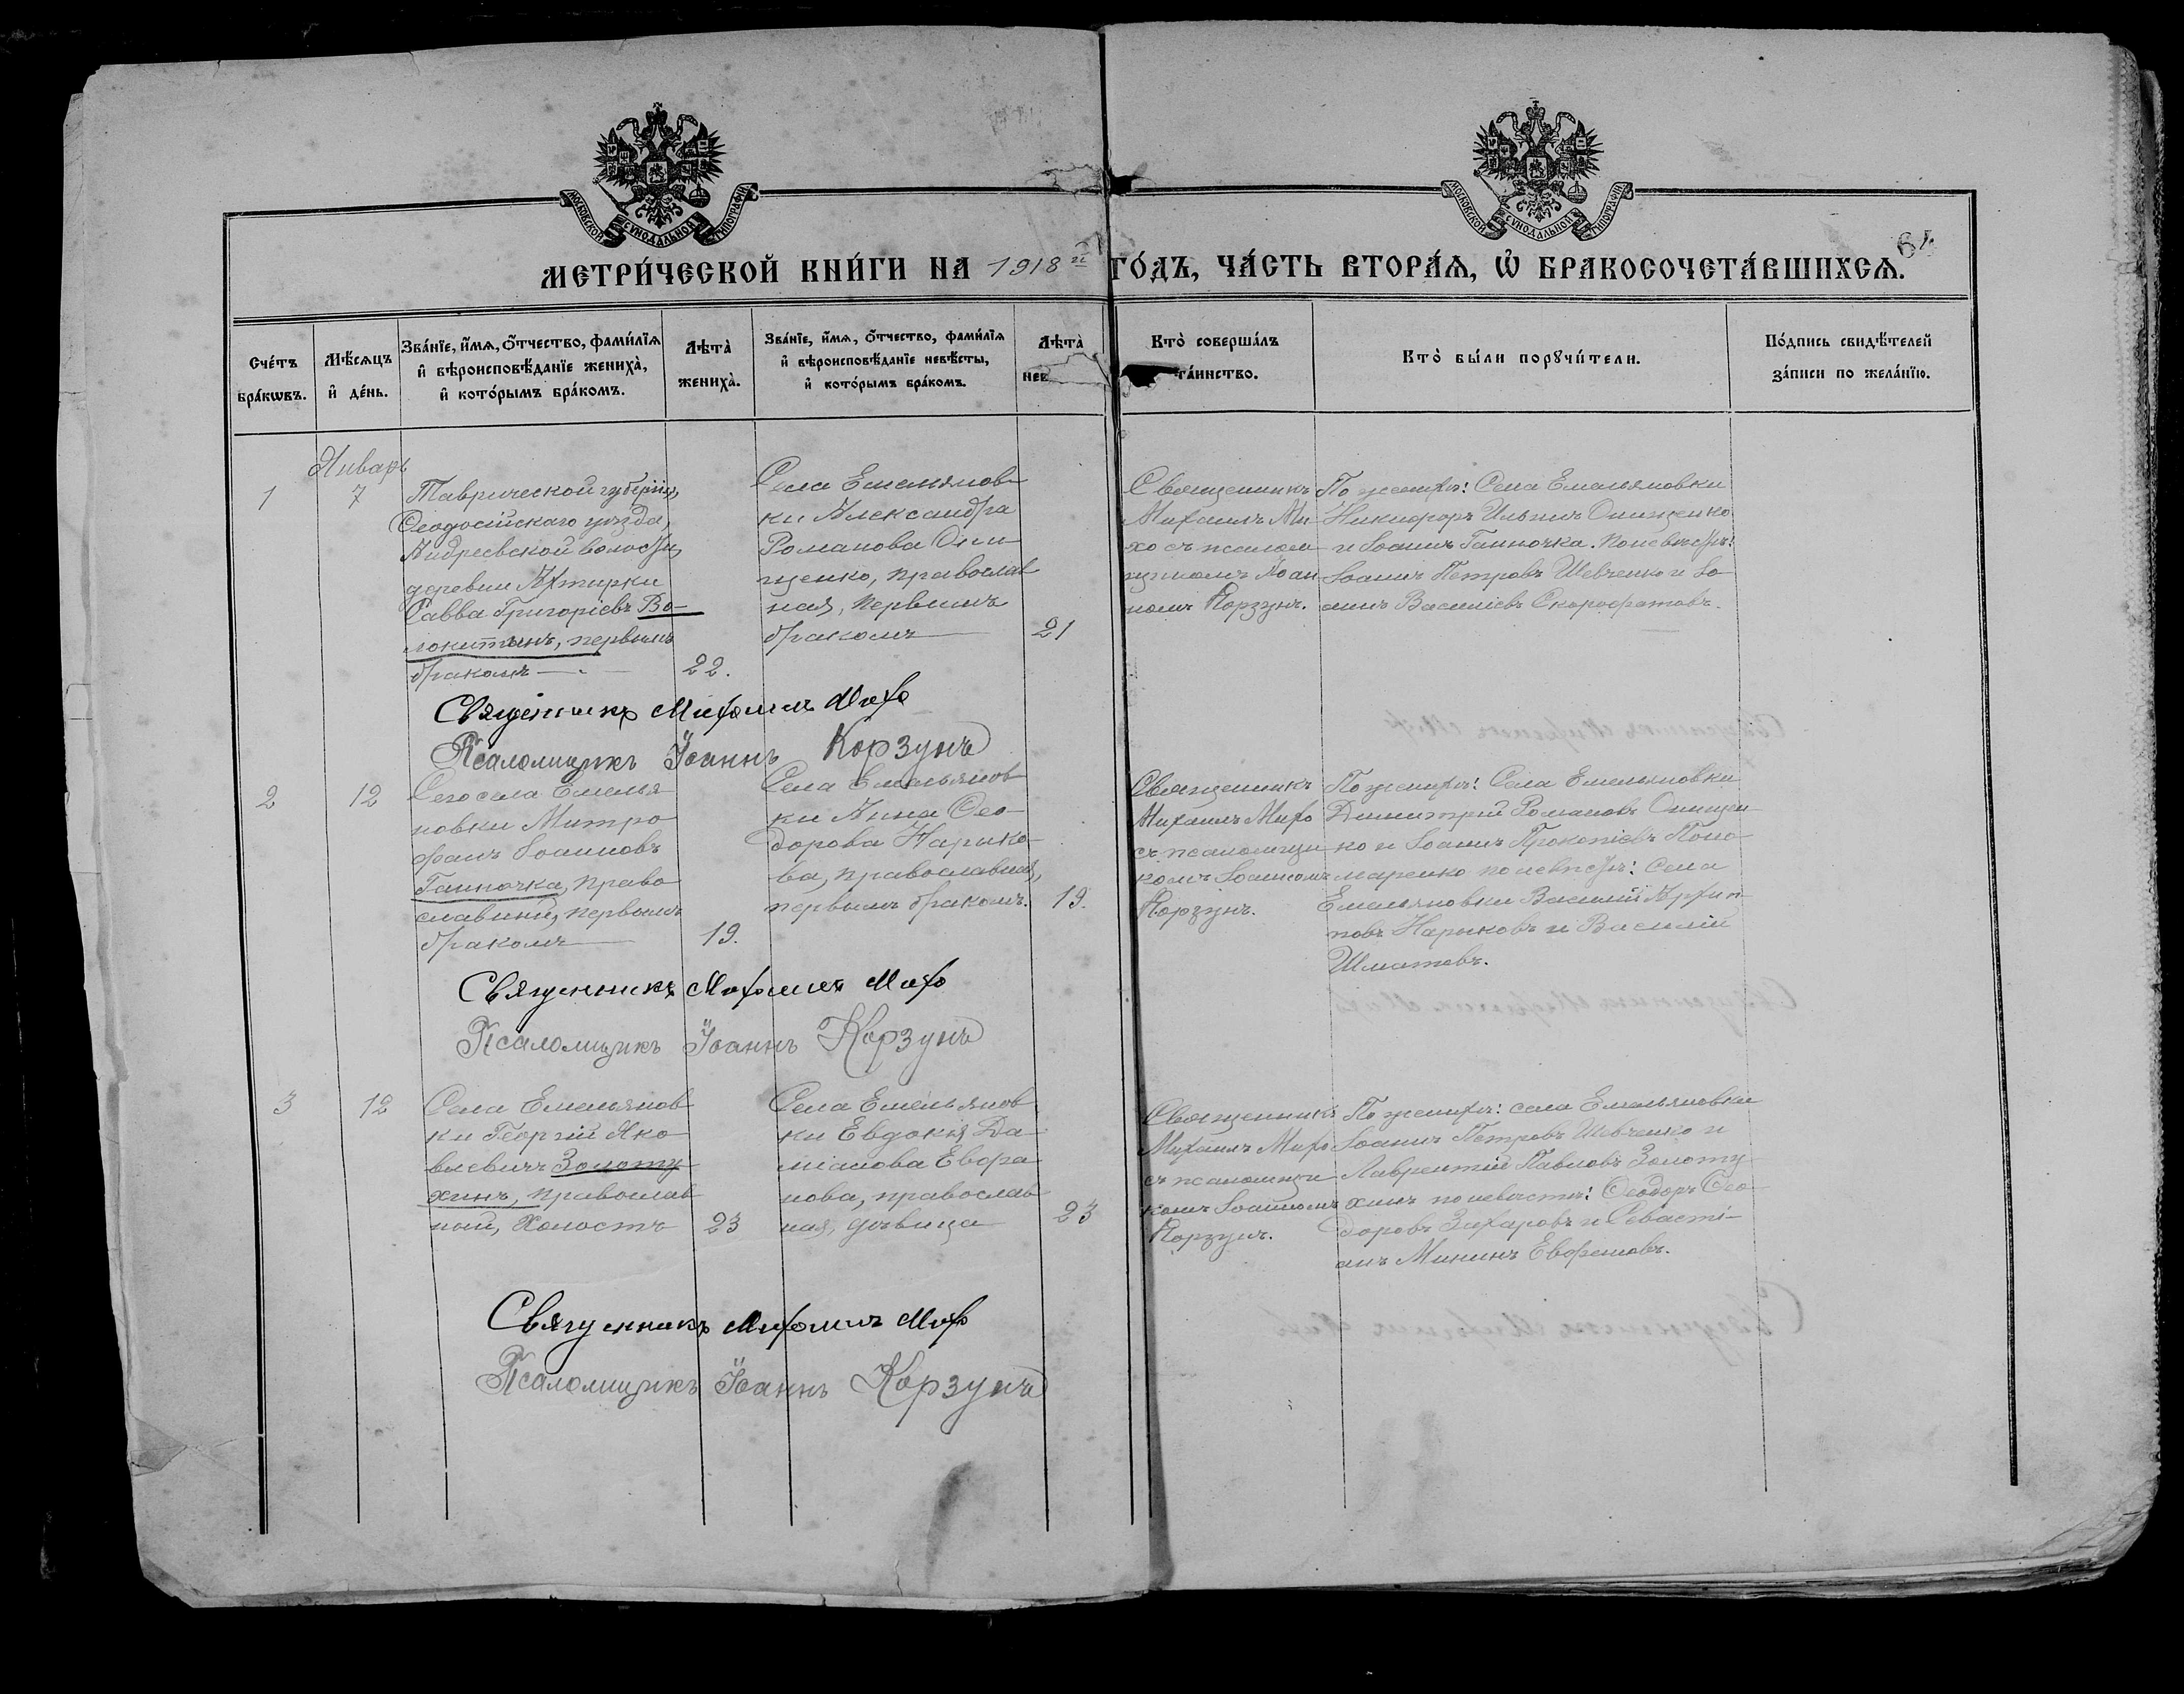 МОСКОВСКОЙ СѴНОДАЛЬНОЙ ТИПОГРАФІИ
МОСКОВСКОЙ СѴНОДАЛЬНОЙ ТИПОГРАФІИ
64
МЕТРИ́ЧЕСКОЙ КНИ́ГИ НА 1918 й ГО́ДЪ, ЧА́СТЬ ВТОРА́Ѧ, Ѡ҆ БРАКОСОЧЕТА́ВШИХСѦ.
Сче́тъ
бра́кѡвъ.
Мѣ́сѧцъ
и҆ де́нь.
Зва́нїе, и҆́мѧ, ѻ҆́тчество, фами́лїѧ
и҆ вѣроисповѣ́данїе жениха̀,
и҆ кото́рымъ бра́комъ.
Лѣта̀
жениха̀.
Зва́нїе, и҆́мѧ, ѻ҆́тчество, фами́лїѧ
и҆ вѣроисповѣ́данїе невѣ́сты,
и҆ кото́рымъ бра́комъ.
Лѣта̀
нев
Кто̀ соверша́лъ
та́инство.
Кто̀ бы́ли порꙋчи́тели.
По́дпись свидѣ́телей
за́писи по жела́нїю.
Январь
1
7
Таврической губерніи,
Ѳеодосійскаго уѣзда,
Андреевской волости,
деревни Ахтирки
Савва Григоріевъ Во-
локитинъ, первымъ
бракомъ
22.
Села Емельянов-
ки Александра
Романова Они-
щенко, православ
ная, первымъ
бракомъ
21
Священникъ
Михаилъ Ми-
хо съ псалом
щикомъ Іоан
номъ Корзунъ.
По женихѣ: Села Емельяновки
Никифоръ Ильинъ Онищенко
и Іоаннъ Ганночка. По невѣстѣ:
Іоаннъ Петровъ Шевченко и Іо-
аннъ Василіевъ Скоробогатовъ.
Священникъ Михаилъ Михо
Псаломщикъ Іоаннъ Корзунъ
2
12
Сего села Емелья-
новки Митро-
фанъ Іоанновъ
Ганночка, право
славный, первымъ
бракомъ
19.
Села Емельянов
ки Анна Ѳео-
дорова Нарико-
ва, православная,
первымъ бракомъ.
19.
Священникъ
Михаилъ Михо
съ псаломщи
комъ Іоанномъ
Корзунъ.
По женихѣ: Села Емельяновки
Димитрій Романовъ Онищен-
ко и Іоаннъ Прокопіевъ Поно-
маренко по невѣстѣ: села
Емельяновки Василій Архип-
повъ Нарыковъ и Василій
Шматовъ.
Священникъ Михаилъ Михо
Псаломщикъ Іоаннъ Корзунъ
3
12
Села Емельянов
ки Георгій Яко
влевичъ Золоту-
хинъ, православ
ный, холостъ
23
Села Емельянов
ки Евдокія Да-
міанова Евфра
нова, православ
ная, дѣвица
23
Священникъ
Михаилъ Михо
съ псаломщи
комъ Іоанномъ
Корзунъ.
По женихѣ: села Емельяновки
Іоаннъ Петровъ Шевченко и
Лаврентій Павловъ Золоту-
хинъ по невѣстѣ: Ѳеодоръ Ѳео-
доровъ Захаровъ и Севасті-
анъ Мининъ Евфремовъ.
Священникъ Михаилъ Михо
Псаломщикъ Іоаннъ Корзунъ